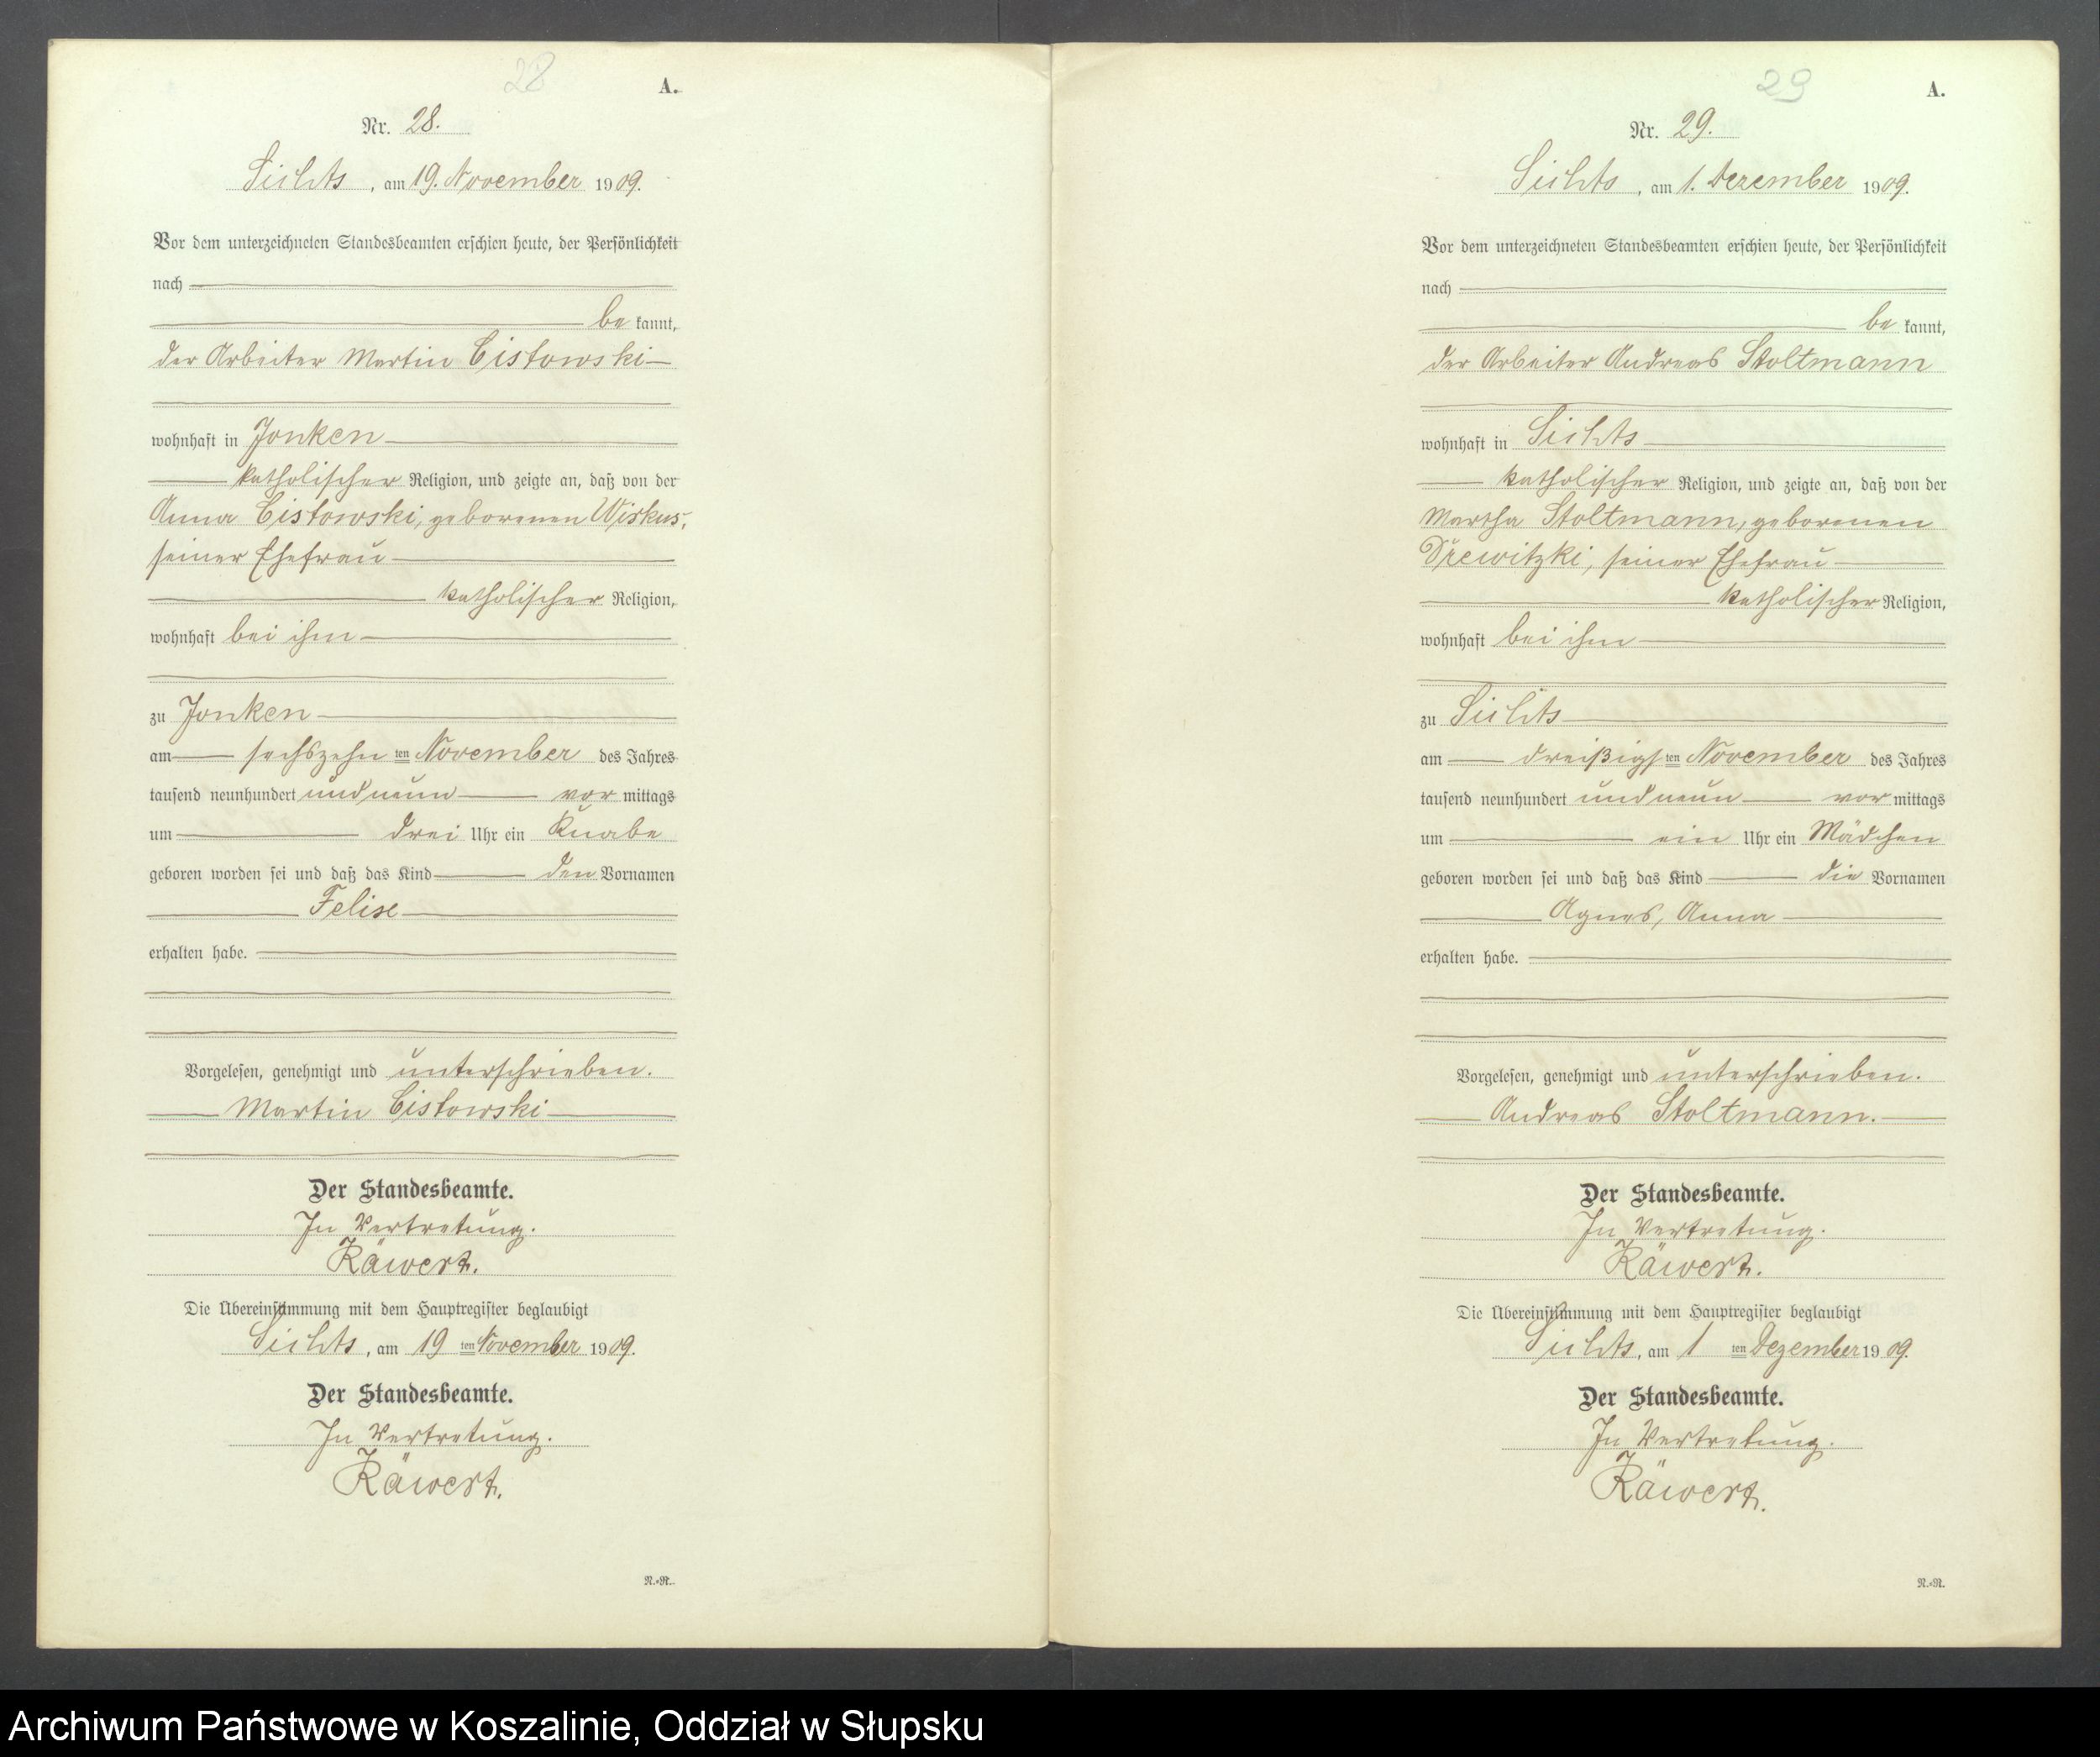 28
A.
Nr. 28.
Sichts, am 19. November 1909.
Vor dem unterzeichneten Standesbeamten erschien heute, der Persönlichkeit
nach
bekannt,
der Arbeiter Martin Cistowski
wohnhaft in Jonken
katholischer Religion, und zeigte an, daß von der
Anna Cistowski, geborenen Wirkus,
seiner Ehefrau
katholischer Religion,
wohnhaft bei ihm
zu Jonken
am sechszehnten November des Jahres
tausend neunhundert und neun vormittags
um drei Uhr ein Knabe
geboren worden sei und daß das Kind den Vornamen
Felise
erhalten habe.
Vorgelesen, genehmigt und unterschrieben.
Martin Cistowski
Der Standesbeamte.
In Vertretung.
Räwert.
Die Übereinstimmung mit dem Hauptregister beglaubigt
Sichts, am 19ten November 1909.
Der Standesbeamte.
In Vertretung.
Räwert.
N.-R.
29
A.
Nr. 29.
Sichts, am 1. Dezember 1909.
Vor dem unterzeichneten Standesbeamten erschien heute, der Persönlichkeit
nach
bekannt,
der Arbeiter Andreas Stoltmann
wohnhaft in Sichts
katholischer Religion, und zeigte an, daß von der
Martha Stoltmann, geborenen
Drewitzki, seiner Ehefrau
katholischer Religion,
wohnhaft bei ihm
zu Sichts
am dreißigsten November des Jahres
tausend neunhundert und neun vormittags
um ein Uhr ein Mädchen
geboren worden sei und daß das Kind die Vornamen
Agnes, Anna
erhalten habe.
Vorgelesen, genehmigt und unterschrieben.
Andreas Stoltmann.
Der Standesbeamte.
In Vertretung.
Räwert.
Die Übereinstimmung mit dem Hauptregister beglaubigt
Sichts, am 1ten Dezember 1909.
Der Standesbeamte.
In Vertretung.
Räwert.
N.-R.
Archiwum Państwowe w Koszalinie, Oddział w Słupsku